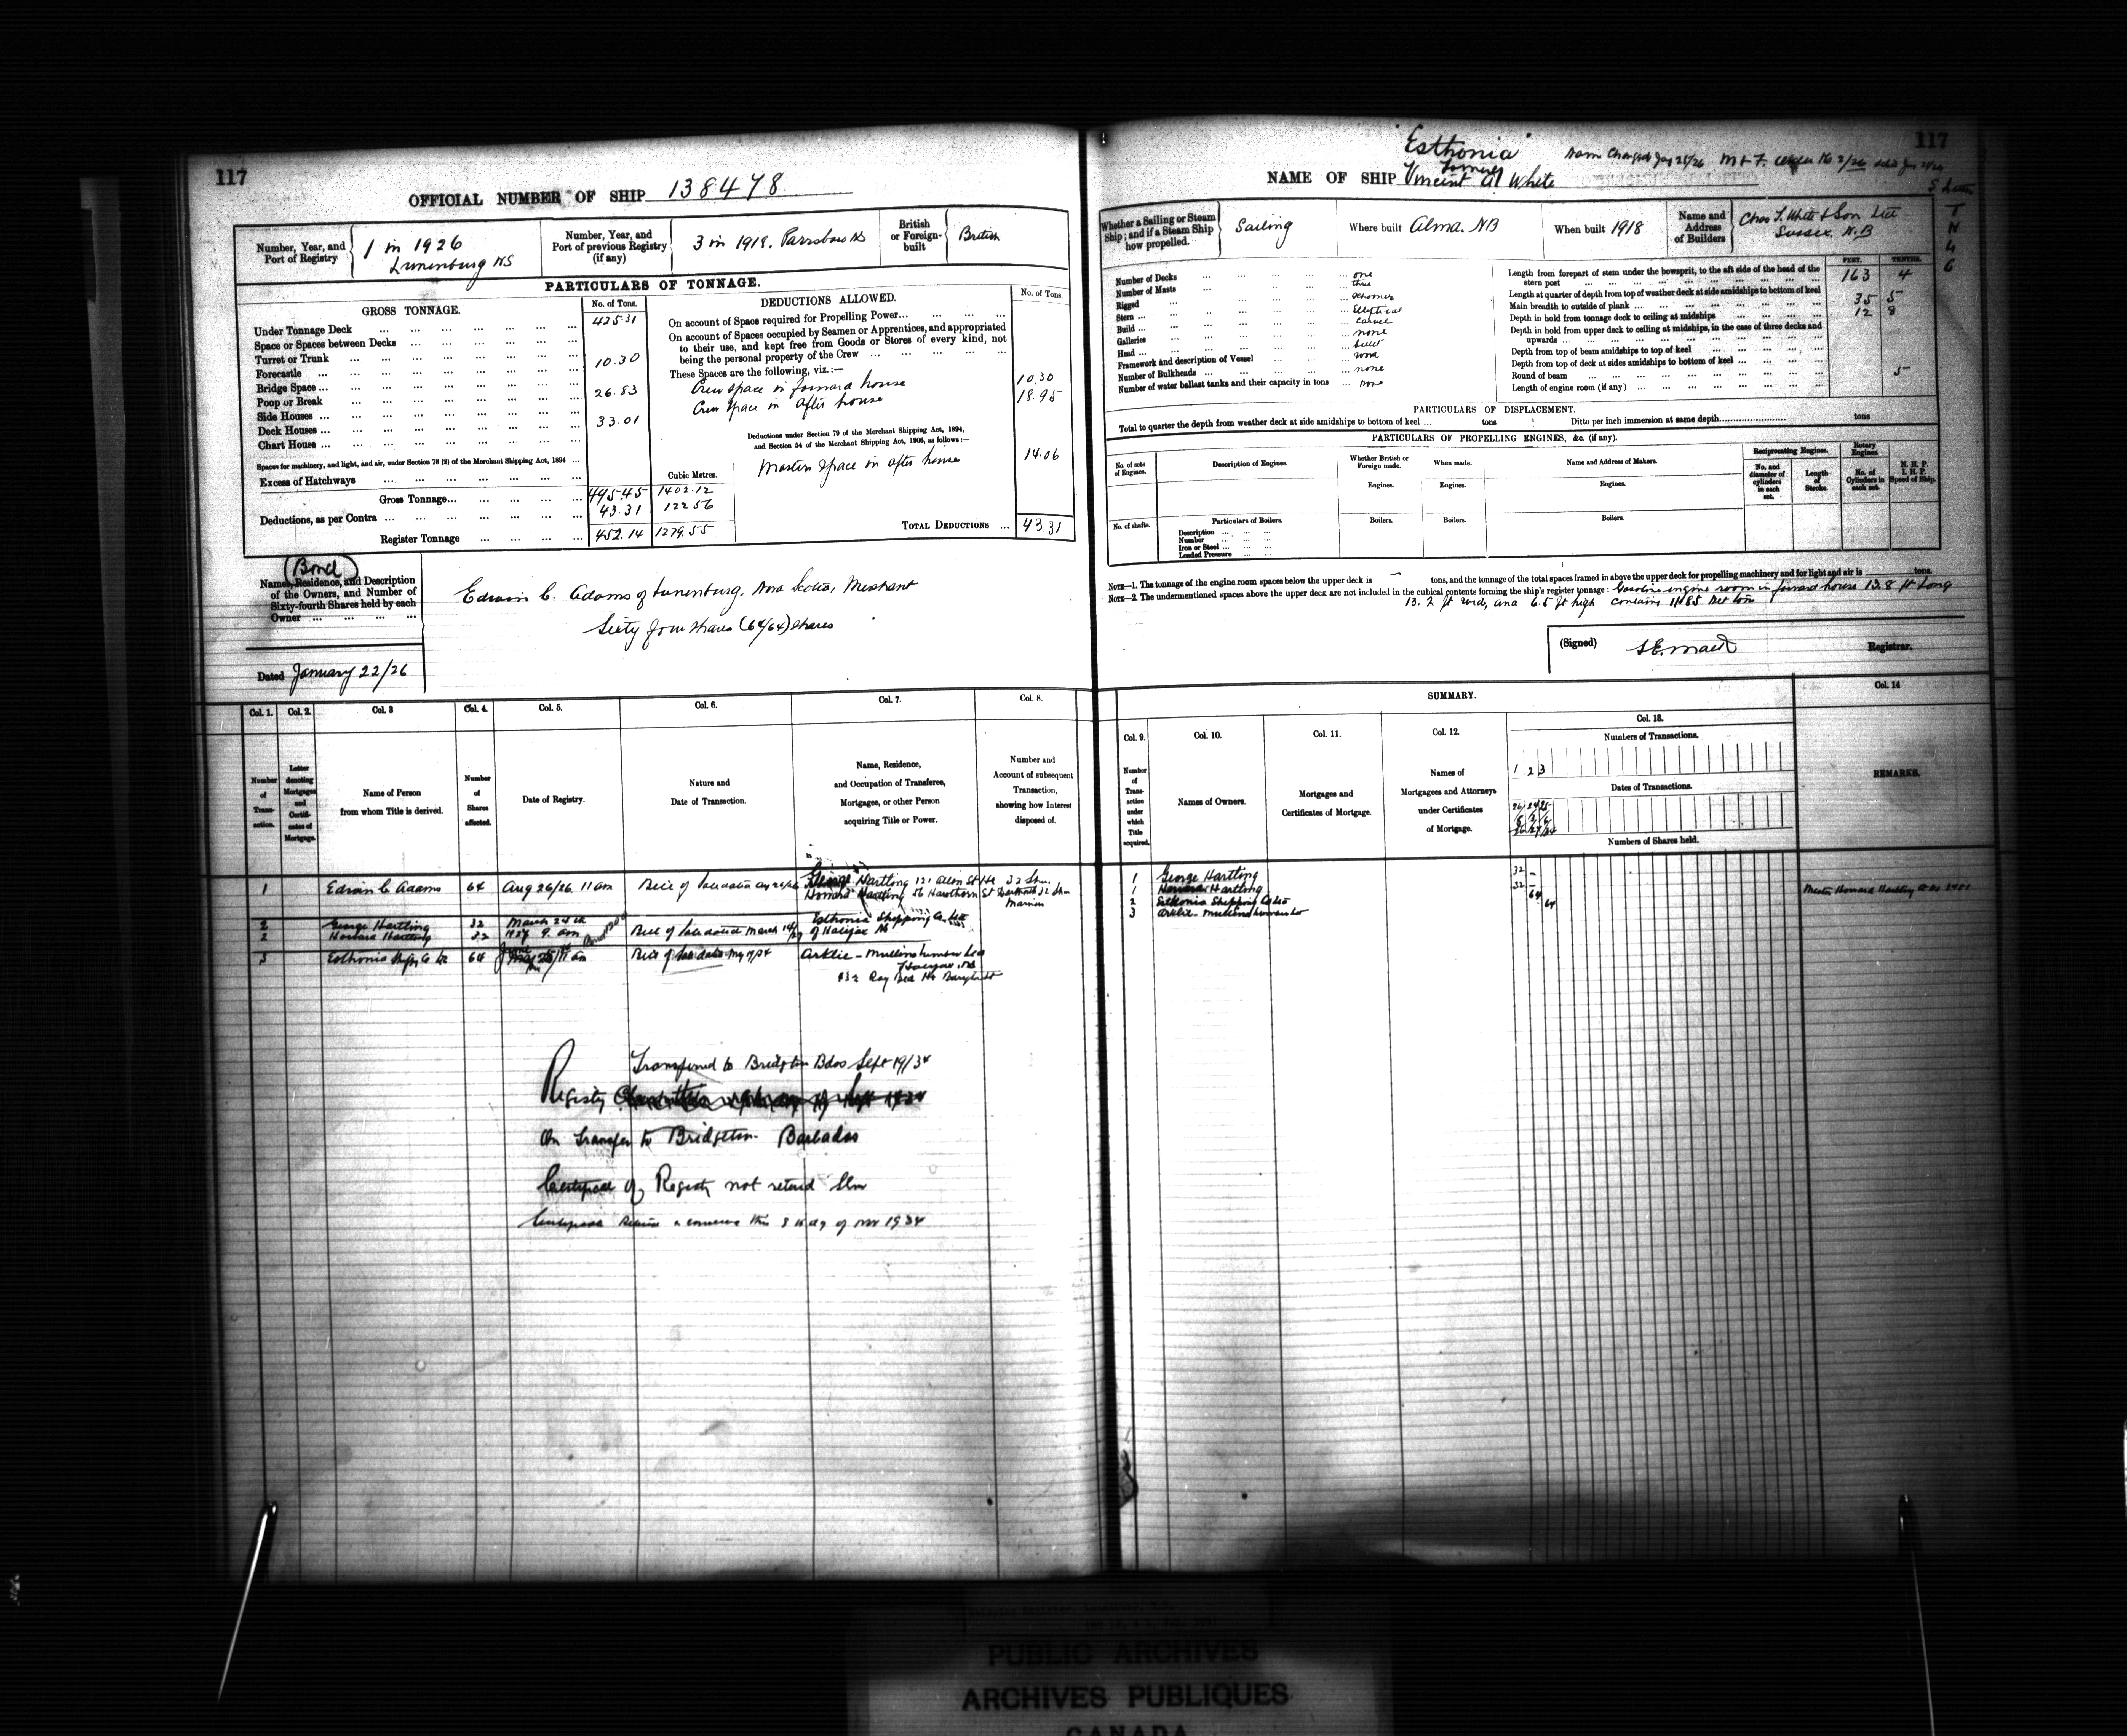 117
OFFICIAL NUMBER OF SHIP 138478
Number, Year, and Port of Registry
1 in 1926
Lunenburg NS
Number, Year, and Port of previous Registry (if any)
3 in 1918. Parrsboro NS
British or Foreign-built
British
PARTICULARS OF TONNAGE.
GROSS TONNAGE.
No. of Tons.
Under Tonnage Deck 425.31
Space or Spaces between Decks
Turret or Trunk
Forecastle 10.30
Bridge Space
Poop or Break 26.83
Side Houses
Deck Houses 33.01
Chart House
Spaces for machinery, and light, and air, under Section 78 (2) of the Merchant Shipping Act, 1894
Excess of Hatchways
Cubic Metres.
Gross Tonnage 495.45 1402.12
Deductions, as per Contra 43.31 122 56
Register Tonnage 452.14 1279.55
DEDUCTIONS ALLOWED.
No. of Tons.
On account of Space required for Propelling Power
On account of Spaces occupied by Seamen or Apprentices, and appropriated
to their use, and kept free from Goods or Stores of every kind, not
being the personal property of the Crew
These Spaces are the following, viz.:—
Crew space in forward house 10.30
Crew space in after house 18.95
Deductions under Section 79 of the Merchant Shipping Act, 1894,
and Section 54 of the Merchant Shipping Act, 1906, as follows:—
Masters space in after house 14.06
TOTAL DEDUCTIONS 43 31
(Bond)
Names, Residence, and Description
of the Owners, and Number of
Sixty-fourth Shares held by each
Owner
Edwin C. Adams of Lunenburg, Nova Scotia, Merchant
Sixty four shares (64/64) shares
Dated January 22/26
Col. 1. Col. 2. Col. 3 Col. 4. Col. 5. Col. 6. Col. 7. Col. 8.
Number of Transaction.
Letter denoting Mortgages and Certificates of Mortgage.
Name of Person from whom Title is derived.
Number of Shares affected.
Date of Registry.
Nature and Date of Transaction.
Name, Residence, and Occupation of Transferee, Mortgagee, or other Person acquiring Title or Power.
Number and Account of subsequent Transaction, showing how Interest disposed of.
1 Edwin C Adams 64 Aug 26/26 11 am
George Hartling
Howard Hartling
2 George Hartling 32 March 24th
2 Howard Hartling 32 9. am Bill of Sale dated March
Esthonia Shipping Co. Ltd
of Halifax NS
3 Esthonia Shipg Co 64
Transferred to Bridgton Bdos Sept 19/34
Registry
On Transfer to Bridgeton Barbados
Certificate of Registry not returned
117
Esthonia
Name Changed Jan 25/26
formerly
NAME OF SHIP Vincent A White
5 letter
T N 4 G
Whether a Sailing or Steam Ship; and if a Steam Ship how propelled.
Sailing
Where built Alma. NB
When built 1918
Name and Address of Builders
Chas T. White & Son Ltd
Sussex. N.B
Number of Decks one
Number of Masts three
Rigged schooner
Stern Elliptical
Build carvel
Galleries none
Head billet
Framework and description of Vessel wood
Number of Bulkheads none
Number of water ballast tanks and their capacity in tons none
FEET. TENTHS.
Length from forepart of stem under the bowsprit, to the aft side of the head of the stern post 163 4
Length at quarter of depth from top of weather deck at side amidships to bottom of keel
Main breadth to outside of plank 35 5
Depth in hold from tonnage deck to ceiling at midships 12 8
Depth in hold from upper deck to ceiling at midships, in the case of three decks and upwards
Depth from top of beam amidships to top of keel
Depth from top of deck at sides amidships to bottom of keel
Round of beam 5
Length of engine room (if any)
PARTICULARS OF DISPLACEMENT.
Total to quarter the depth from weather deck at side amidships to bottom of keel tons Ditto per inch immersion at same depth tons
PARTICULARS OF PROPELLING ENGINES, &c. (if any).
No. of sets of Engines.
Description of Engines.
Whether British or Foreign made.
When made.
Name and Address of Makers.
Reciprocating Engines.
Rotary Engines.
No. and diameter of cylinders in each set.
Length of Stroke.
No. of Cylinders in each set.
N. H. P.
I. H. P.
Speed of Ship.
Engines. Engines. Engines.
No. of shafts.
Particulars of Boilers.
Boilers. Boilers. Boilers.
Description
Number
Iron or Steel
Loaded Pressure
NOTE—1. The tonnage of the engine room spaces below the upper deck is — tons, and the tonnage of the total spaces framed in above the upper deck for propelling machinery and for light and air is tons.
NOTE—2. The undermentioned spaces above the upper deck are not included in the cubical contents forming the ship's register tonnage: Gasoline engine room in forward house 13.8 ft long
13.2 ft wide, and 6.5 ft high contains 11.85 net tons
(Signed)
Registrar.
SUMMARY.
Col. 9. Col. 10. Col. 11. Col. 12. Col. 13. Col. 14
Number of Transaction under which Title acquired.
Names of Owners.
Mortgages and Certificates of Mortgage.
Names of Mortgagees and Attorneys under Certificates of Mortgage.
Numbers of Transactions.
1 2 3
Dates of Transactions.
Numbers of Shares held.
REMARKS.
1 George Hartling 32
1 Howard Hartling 32
2 Esthonia Shipping Co Ltd 64
3 64
PUBLIC ARCHIVES
ARCHIVES PUBLIQUES
CANADA